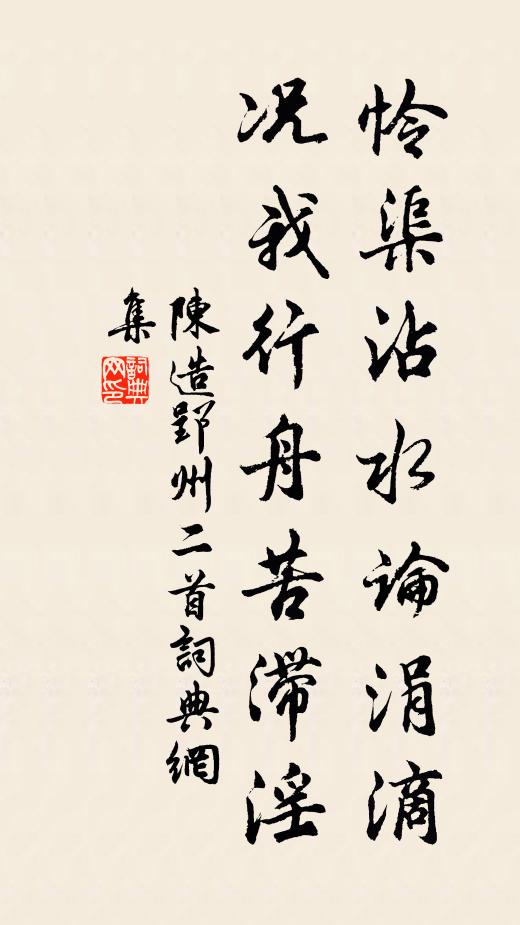 怜渠沾水論涓滴
况我行舟苦滯淫
陳造郢州二首詞典網
集
詞典网印